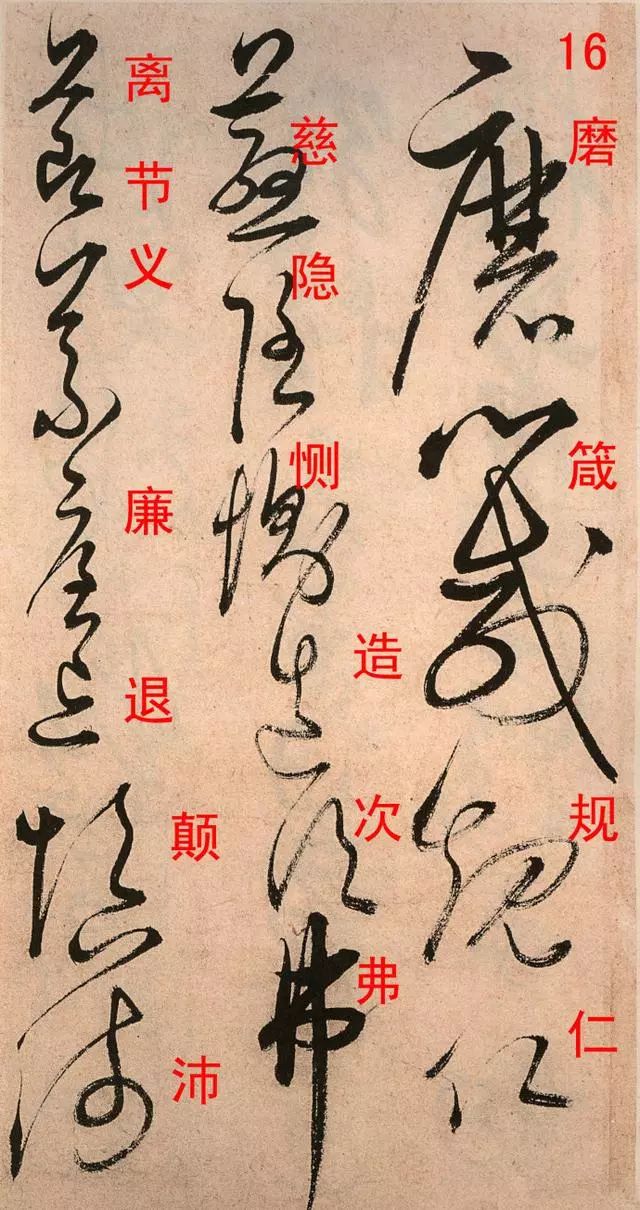 16
磨箴规仁
慈隐恻造次弗
离节义廉退颠沛